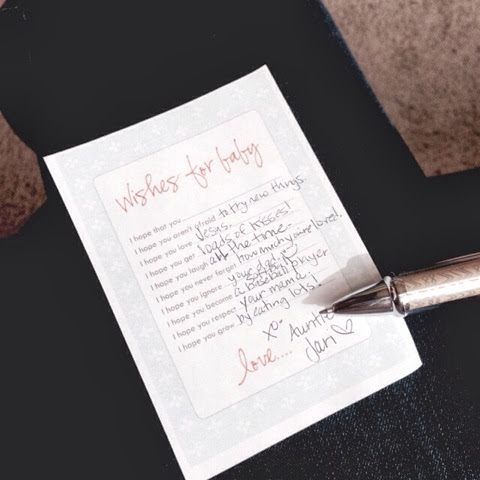 wishes for baby
I hope that you
I hope you aren't afraid to try new things.
I hope you love Jesus.
I hope you get loads of kisses!
I hope you laugh all the time.
I hope you never forget how much you're loved!
I hope you ignore your dad.
I hope you become a baseball player
I hope you respect your mama!
I hope you grow by eating lots!
xo
love.... Auntie
Jari